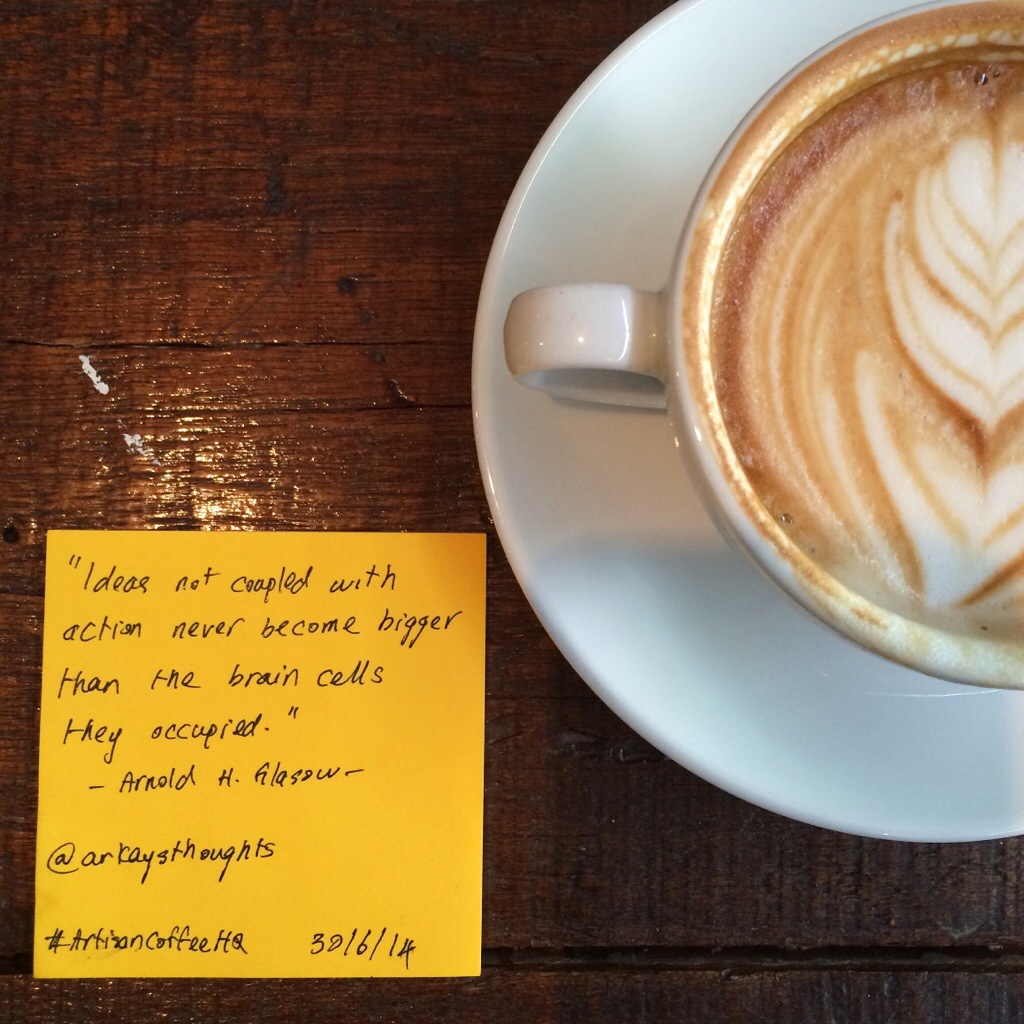 "Ideas not coupled with
action never become bigger
than the brain cells
they occupied."
- Arnold H. Glasow -
@arkaysthoughts
#ArtisanCoffeeHQ 30/6/14